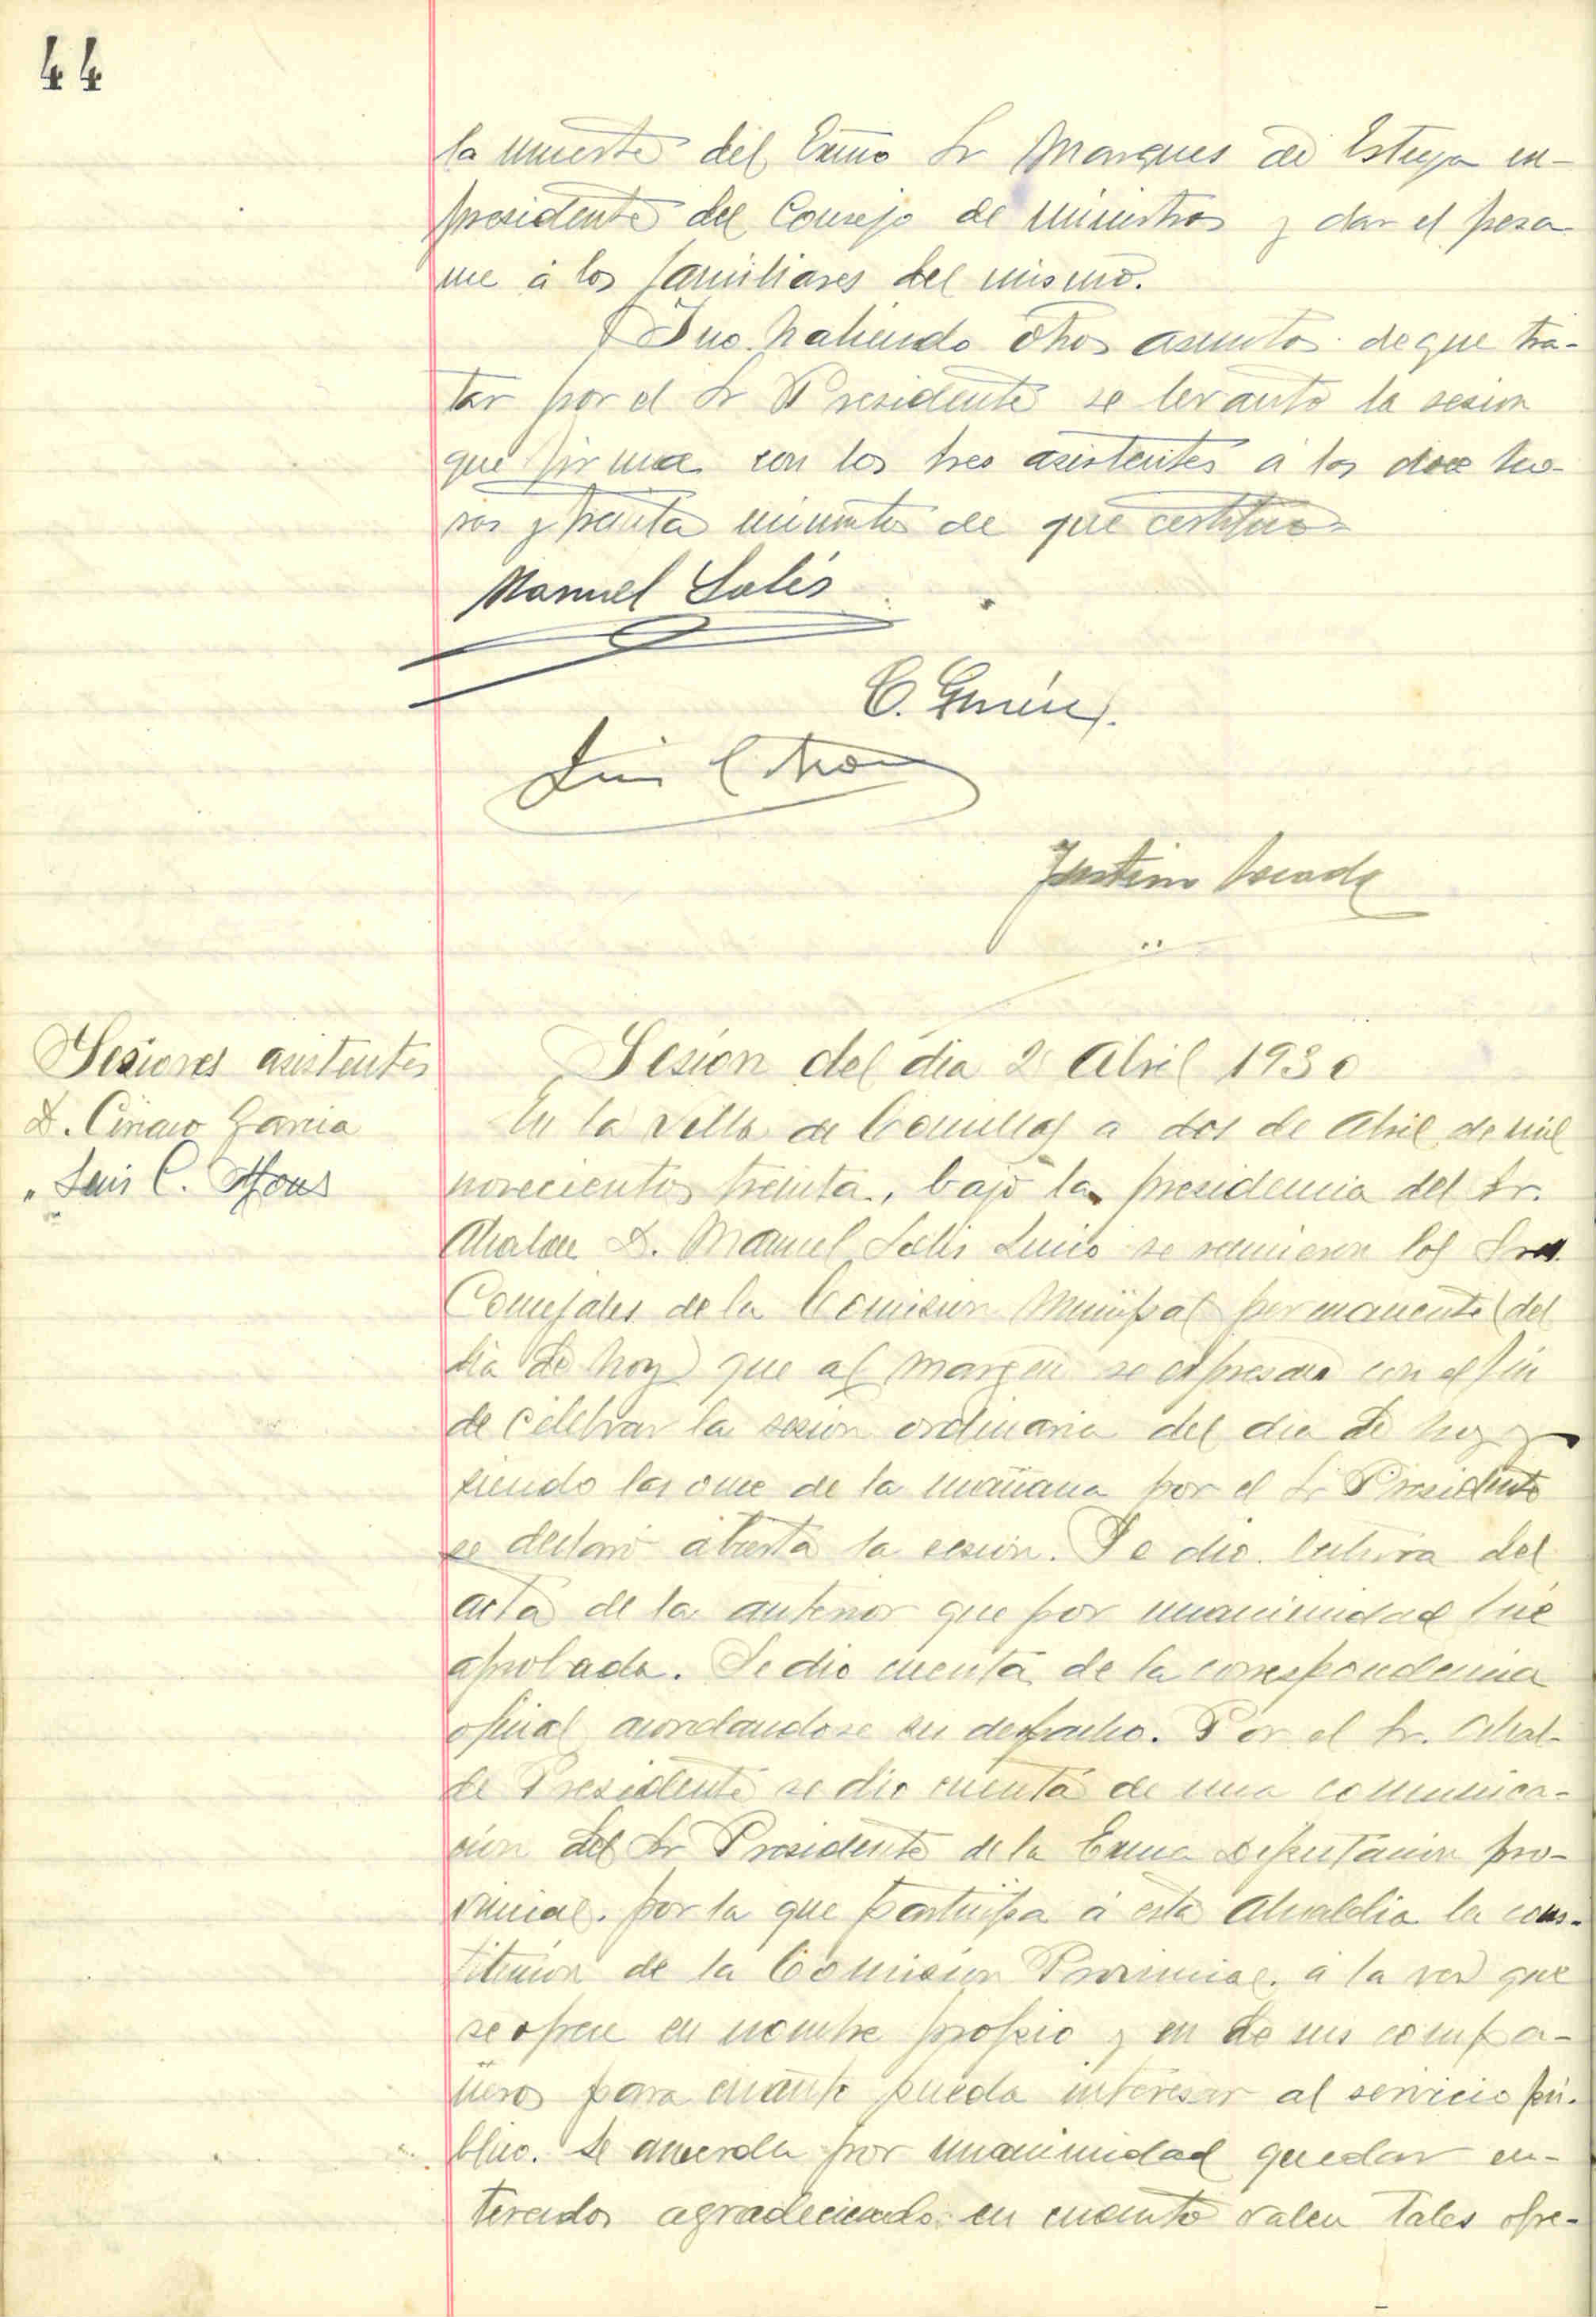 44
la muerte del Exmo Sr Marques de Estella ex-
presidente del Consejo de Ministros y dar el pesa
me á los familiares del mismo.
Y no habiendo otros asuntos de que tra-
tar por el Sr Presidente se levanto la sesion
que firma con los tres asistentes á las doce ho-
ras y treinta minutos de que certifico=
Manuel Solís
C. García
Luis C
Justino
Señores asistentes
D. Ciriaco Garcia
" Luis C.
Sesion del dia 2 Abril 1930
En la Villa de Comillas a dos de Abril de mil
novecientos treinta, bajo la presidencia del Sr.
Alcalde D. Manuel Solís se reunieron los Sres.
Concejales de la Comision Municipal permanente (del
dia de hoy) que al margen se expresan con el fin
de celebrar la sesion ordinaria del dia de hoy y
siendo las once de la mañana por el Sr Presidente
se declaró abierta la sesión. Se dio lectura del
acta de la anterior que por unanimidad fué
aprobada. Se dio cuenta de la correspondencia
oficial acordandose su despacho. Por el Sr. Alcal-
de Presidente se dio cuenta de una comunica-
cion del Sr Presidente de la Exma Diputacion pro-
vincial. por la que participa á esta Alcaldia la cons-
titucion de la Comision Provincial. a la vez que
se ofrece en nombre propio y en de sus compa-
ñeros para cuanto pueda interesar al servicio pú-
blico. Se acuerda por unanimidad quedar en-
terados agradeciendo en cuanto valen tales ofre-